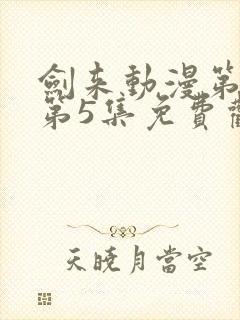 劍來動漫第
第5集免費
天曉月當空